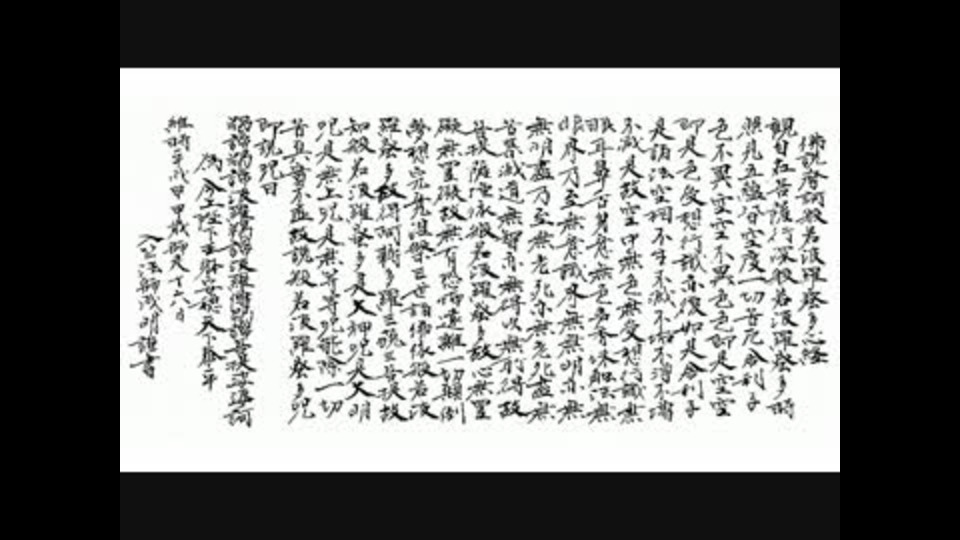 佛説摩訶般若波羅蜜多心経
観自在菩薩行深般若波羅蜜多時
照見五蘊皆空度一切苦厄舎利子
色不異空空不異色色即是空空
即是色受想行識亦復如是舎利子
是諸法空相不生不滅不垢不浄不増
不減是故空中無色無受想行識無
眼耳鼻舌身意無色声香味触法無
眼界乃至無意識界無無明亦無
無明盡乃至無老死亦無老死盡無
苦集滅道無智亦無得以無所得故
菩提薩埵依般若波羅蜜多故心無罣
礙無罣礙故無有恐怖遠離一切顛倒
夢想究竟涅槃三世諸佛依般若波
羅蜜多故得阿耨多羅三藐三菩提故
知般若波羅蜜多是大神呪是大明
呪是無上呪是無等等呪能除一切
苦真實不虚故説般若波羅蜜多呪
即説呪曰
羯諦羯諦波羅羯諦波羅僧羯諦菩提娑婆訶
為今上陛下
維時平成甲申歳
謹書